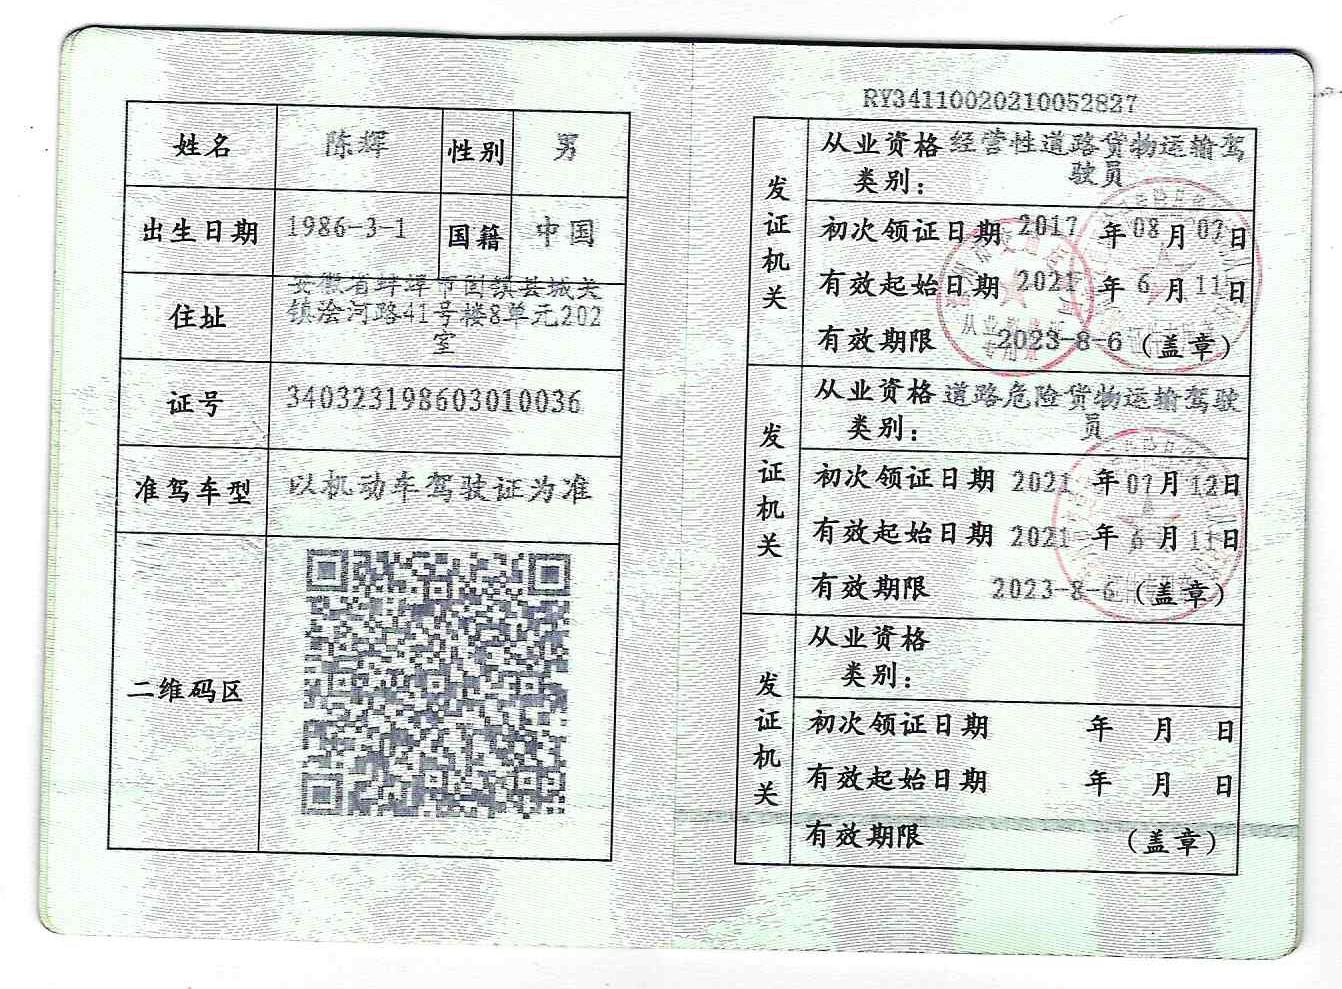 姓名 陈辉 性别 男
出生日期 1986-3-1 国籍 中国
住址 安徽省蚌埠市固镇县城关
镇浍河路41号楼8单元202
室
证号 340323198603010036
准驾车型 以机动车驾驶证为准
二维码区
RY34110020210052827
发证机关
从业资格 经营性道路货物运输驾
类别: 驶员
初次领证日期 2017 年 08 月 07 日
有效起始日期 2021 年 6 月 11 日
有效期限 2023-8-6 (盖章)
发证机关
从业资格 道路危险货物运输驾驶
类别: 员
初次领证日期 2021 年 07 月 12 日
有效起始日期 2021 年 6 月 11 日
有效期限 2023-8-6 (盖章)
发证机关
从业资格
类别:
初次领证日期 年 月 日
有效起始日期 年 月 日
有效期限 (盖章)